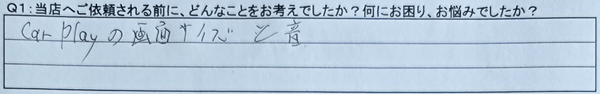 Q1：当店へご依頼される前に、どんなことをお考えでしたか？何にお困り、お悩みでしたか？
Car Playの画面サイズと音